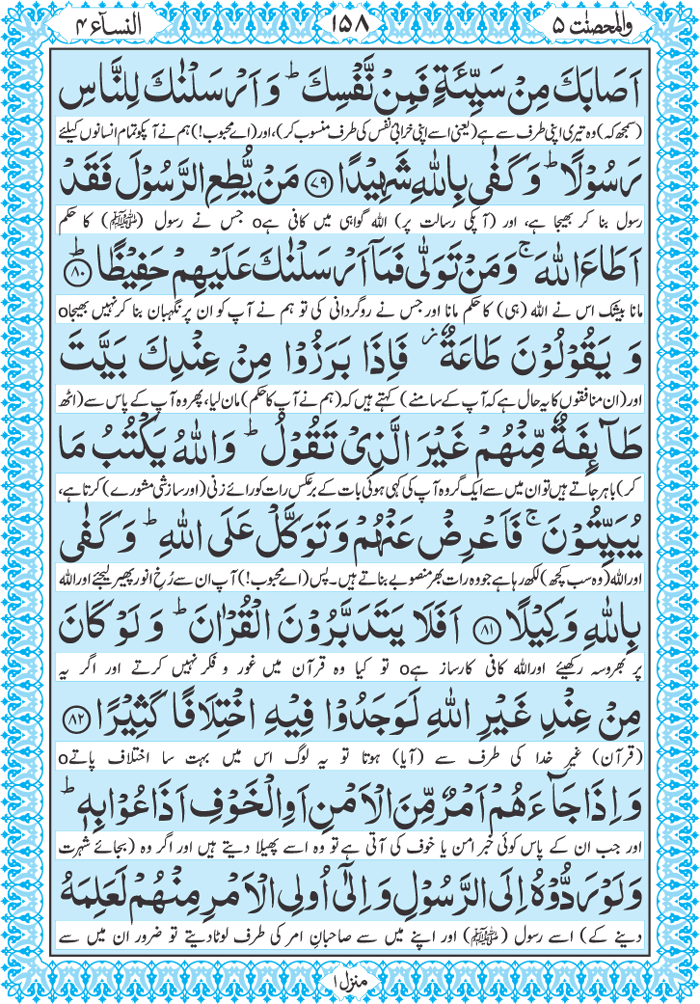 النسآء ۴ ۱۵۸ والمحصنٰت ۵
اَصَابَكَ مِنْ سَیِّئَةٍ فَمِنْ نَّفْسِكَ ؕ وَ اَرْسَلْنٰكَ لِلنَّاسِ
(سمجھ کہ) وہ تیری اپنی طرف سے ہے (یعنی اسے اپنی خرابیِٔ نفس کی طرف منسوب کر)، اور (اے محبوب!) ہم نے آپ کو تمام انسانوں کیلئے
رَسُوْلًا ؕ وَ كَفٰی بِاللّٰهِ شَهِیْدًا ﴿۷۹﴾ مَنْ یُّطِعِ الرَّسُوْلَ فَقَدْ
رسول بنا کر بھیجا ہے، اور (آپکی رسالت پر) اللہ گواہی میں کافی ہےo جس نے رسول (ﷺ) کا حکم
اَطَاعَ اللّٰهَ ۚ وَ مَنْ تَوَلّٰی فَمَاۤ اَرْسَلْنٰكَ عَلَیْهِمْ حَفِیْظًا ﴿ؕ۸۰﴾
مانا بیشک اس نے اللہ (ہی) کا حکم مانا اور جس نے روگردانی کی تو ہم نے آپ کو ان پر نگہبان بنا کر نہیں بھیجاo
وَ یَقُوْلُوْنَ طَاعَةٌ ؗ فَاِذَا بَرَزُوْا مِنْ عِنْدِكَ بَیَّتَ
اور (ان منافقوں کا یہ حال ہے کہ آپ کے سامنے) کہتے ہیں کہ (ہم نے آپ کا حکم) مان لیا، پھر وہ آپ کے پاس سے (اٹھ
طَآىِٕفَةٌ مِّنْهُمْ غَیْرَ الَّذِیْ تَقُوْلُ ؕ وَ اللّٰهُ یَكْتُبُ مَا
کر) باہر جاتے ہیں تو ان میں سے ایک گروہ آپ کی کہی ہوئی بات کے برعکس رات کو رائے زنی (اور سازشی مشورے) کرتا ہے،
یُبَیِّتُوْنَ ۚ فَاَعْرِضْ عَنْهُمْ وَ تَوَكَّلْ عَلَی اللّٰهِ ؕ وَ كَفٰی
اور اللہ (وہ سب کچھ) لکھ رہا ہے جو وہ رات بھر منصوبے بناتے ہیں۔ پس (اے محبوب!) آپ ان سے رُخِ انور پھیر لیجئے اور اللہ
بِاللّٰهِ وَكِیْلًا ﴿۸۱﴾ اَفَلَا یَتَدَبَّرُوْنَ الْقُرْاٰنَ ؕ وَ لَوْ كَانَ
پر بھروسہ رکھیئے اور اللہ کافی کارساز ہےo تو کیا وہ قرآن میں غور و فکر نہیں کرتے اور اگر یہ
مِنْ عِنْدِ غَیْرِ اللّٰهِ لَوَجَدُوْا فِیْهِ اخْتِلَافًا كَثِیْرًا ﴿۸۲﴾
(قرآن) غیرِ خدا کی طرف سے (آیا) ہوتا تو یہ لوگ اس میں بہت سا اختلاف پاتےo
وَ اِذَا جَآءَهُمْ اَمْرٌ مِّنَ الْاَمْنِ اَوِ الْخَوْفِ اَذَاعُوْا بِهٖ ؕ
اور جب ان کے پاس کوئی خبر امن یا خوف کی آتی ہے تو وہ اسے پھیلا دیتے ہیں اور اگر وہ (بجائے شہرت
وَ لَوْ رَدُّوْهُ اِلَی الرَّسُوْلِ وَ اِلٰۤی اُولِی الْاَمْرِ مِنْهُمْ لَعَلِمَهُ
دینے کے) اسے رسول (ﷺ) اور اپنے میں سے صاحبانِ امر کی طرف لوٹا دیتے تو ضرور ان میں سے
منزل ۱